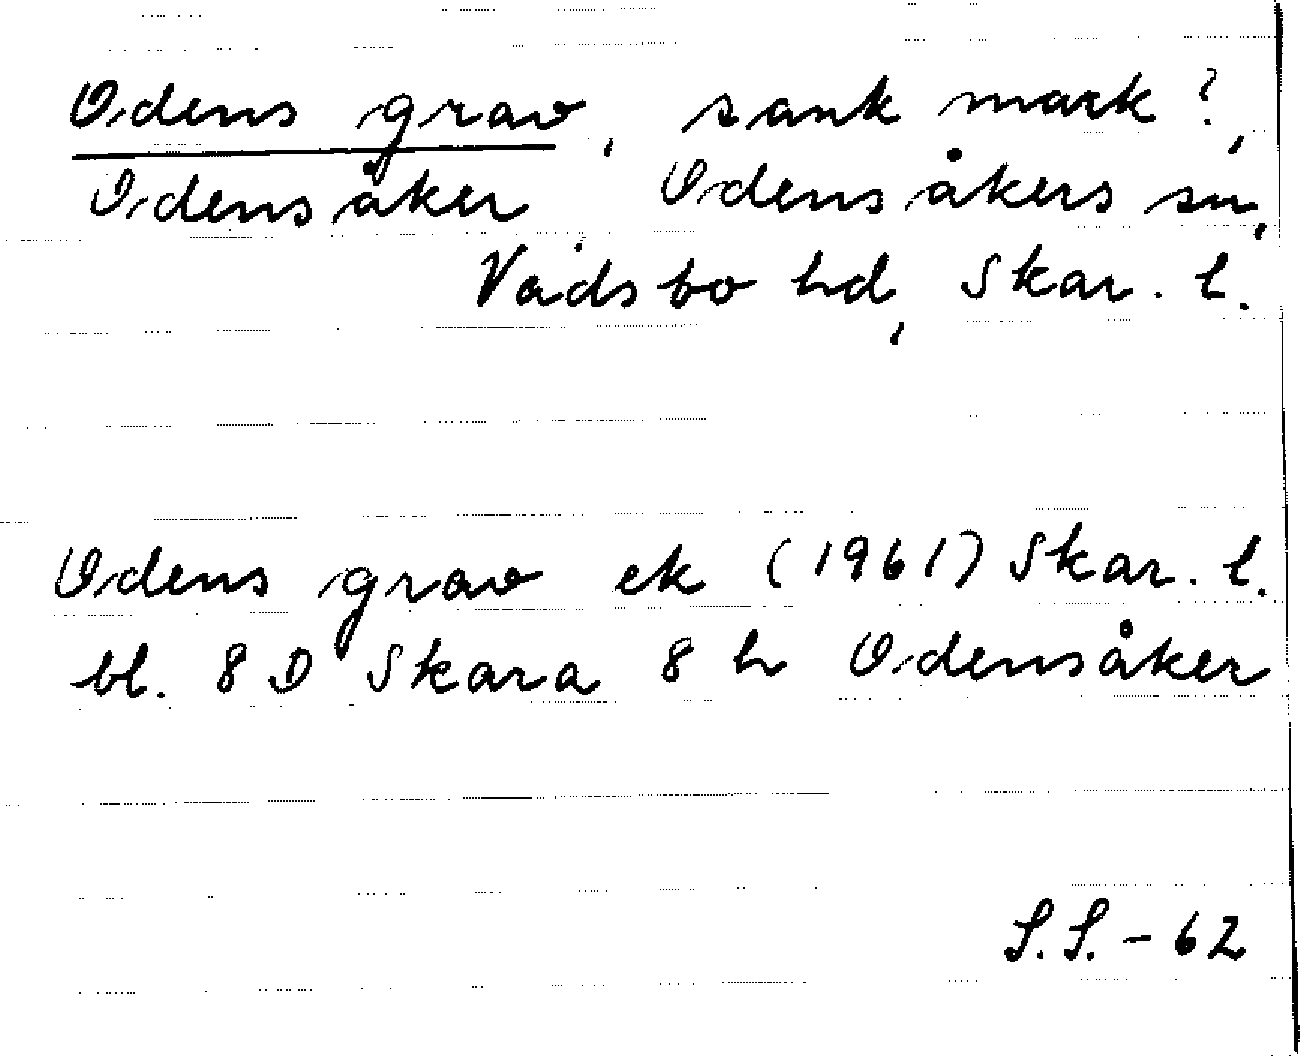 Odens grav, sank mark?,
Odensåker Odensåkers sn,
Vadsbo hd, Skar. l.
Odens grav ek (1961) Skar. l.
bl. 8 D Skara 8 h Odensåker
S.S. - 62